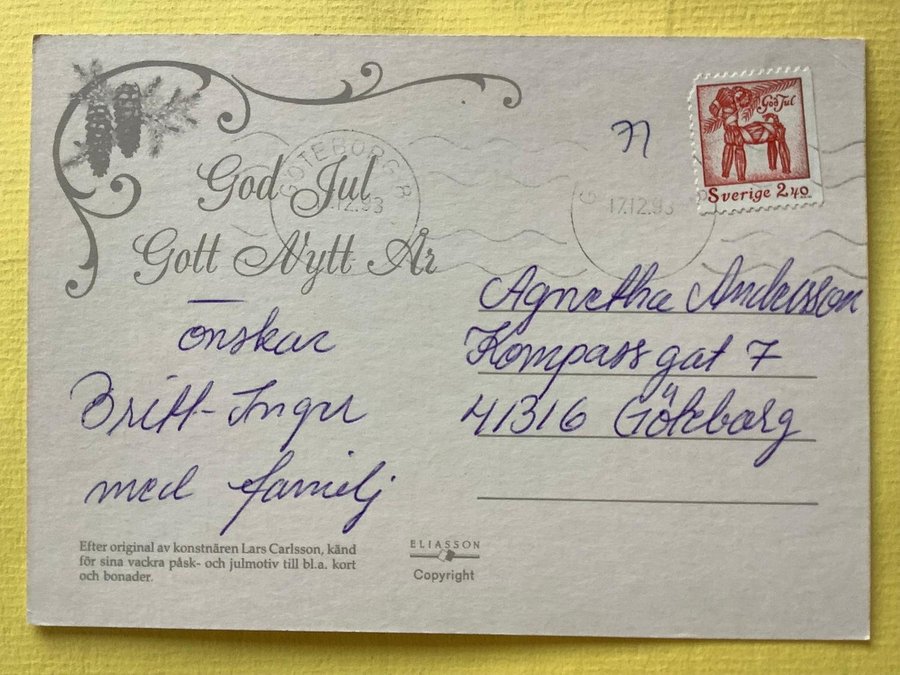 God Jul
Gott Nytt År
önskar
Britt-Inger
med familj
Efter original av konstnären Lars Carlsson, känd
för sina vackra påsk- och julmotiv till bl.a. kort
och bonader.
ELIASSON
Copyright
GÖTEBORG
17.12.93
God Jul
Sverige 2,40
Agnetha Andersson
Kompassgat 7
41316 Göteborg